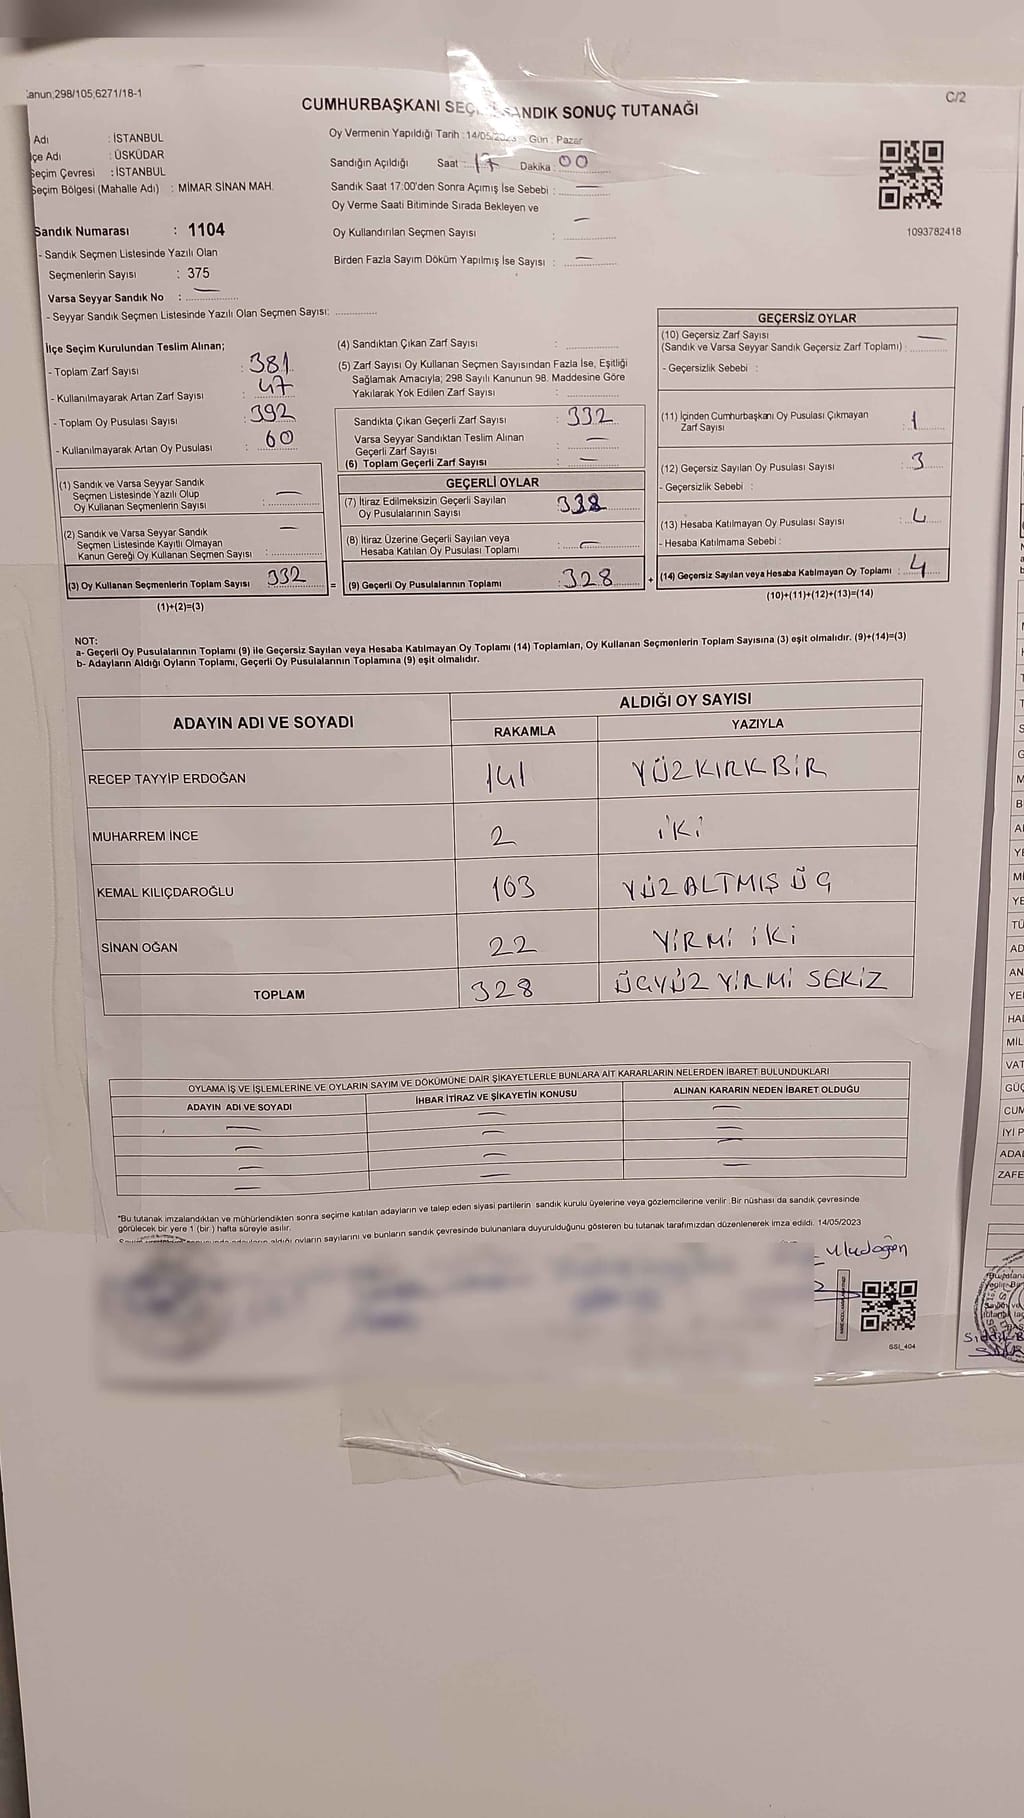 anun;298/105,6271/18-1
C/2
CUMHURBAŞKANI SANDIK SONUÇ TUTANAĞI
Adı : İSTANBUL
lçe Adı : ÜSKÜDAR
Seçim Çevresi : İSTANBUL
Seçim Bölgesi (Mahalle Adı) : MİMAR SİNAN MAH.
Oy Vermenin Yapıldığı Tarih : 14/05/2023 Gün : Pazar
Sandığın Açıldığı Saat : 17 Dakika : 00
Sandık Saat 17:00'den Sonra Açımış İse Sebebi : —
Oy Verme Saati Bitiminde Sırada Bekleyen ve
Oy Kullandırılan Seçmen Sayısı : —
Birden Fazla Sayım Döküm Yapılmış İse Sayısı : —
1093782418
Sandık Numarası : 1104
- Sandık Seçmen Listesinde Yazılı Olan
Seçmenlerin Sayısı : 375
Varsa Seyyar Sandık No : —
- Seyyar Sandık Seçmen Listesinde Yazılı Olan Seçmen Sayısı:
İlçe Seçim Kurulundan Teslim Alınan;
- Toplam Zarf Sayısı : 381
- Kullanılmayarak Artan Zarf Sayısı : 47
- Toplam Oy Pusulası Sayısı : 392
- Kullanılmayarak Artan Oy Pusulası : 60
(1) Sandık ve Varsa Seyyar Sandık
Seçmen Listesinde Yazılı Olup
Oy Kullanan Seçmenlerin Sayısı : —
(2) Sandık ve Varsa Seyyar Sandık
Seçmen Listesinde Kayıtlı Olmayan
Kanun Gereği Oy Kullanan Seçmen Sayısı : —
(3) Oy Kullanan Seçmenlerin Toplam Sayısı 332 =
(1)+(2)=(3)
(4) Sandıktan Çıkan Zarf Sayısı :
(5) Zarf Sayısı Oy Kullanan Seçmen Sayısından Fazla İse, Eşitliği
Sağlamak Amacıyla; 298 Sayılı Kanunun 98. Maddesine Göre
Yakılarak Yok Edilen Zarf Sayısı :
Sandıkta Çıkan Geçerli Zarf Sayısı : 332
Varsa Seyyar Sandıktan Teslim Alınan
Geçerli Zarf Sayısı : —
(6) Toplam Geçerli Zarf Sayısı : —
GEÇERLİ OYLAR
(7) İtiraz Edilmeksizin Geçerli Sayılan
Oy Pusulalarının Sayısı : 328
(8) İtiraz Üzerine Geçerli Sayılan veya
Hesaba Katılan Oy Pusulası Toplamı : —
(9) Geçerli Oy Pusulalarının Toplamı : 328 +
GEÇERSİZ OYLAR
(10) Geçersiz Zarf Sayısı
(Sandık ve Varsa Seyyar Sandık Geçersiz Zarf Toplamı) : —
- Geçersizlik Sebebi :
(11) İçinden Cumhurbaşkanı Oy Pusulası Çıkmayan
Zarf Sayısı : 1
(12) Geçersiz Sayılan Oy Pusulası Sayısı : 3
- Geçersizlik Sebebi :
(13) Hesaba Katılmayan Oy Pusulası Sayısı : 4
- Hesaba Katılmama Sebebi :
(14) Geçersiz Sayılan veya Hesaba Katılmayan Oy Toplamı : 4
(10)+(11)+(12)+(13)=(14)
NOT:
a- Geçerli Oy Pusulalarının Toplamı (9) ile Geçersiz Sayılan veya Hesaba Katılmayan Oy Toplamı (14) Toplamları, Oy Kullanan Seçmenlerin Toplam Sayısına (3) eşit olmalıdır. (9)+(14)=(3)
b- Adayların Aldığı Oyların Toplamı, Geçerli Oy Pusulalarının Toplamına (9) eşit olmalıdır.
ADAYIN ADI VE SOYADI ALDIĞI OY SAYISI
RAKAMLA YAZIYLA
RECEP TAYYİP ERDOĞAN 141 YÜZKIRKBİR
MUHARREM İNCE 2 İKİ
KEMAL KILIÇDAROĞLU 163 YÜZALTMIŞ ÜÇ
SİNAN OĞAN 22 YİRMİ İKİ
TOPLAM 328 ÜÇYÜZ YİRMİ SEKİZ
OYLAMA İŞ VE İŞLEMLERİNE VE OYLARIN SAYIM VE DÖKÜMÜNE DAİR ŞİKAYETLERLE BUNLARA AİT KARARLARIN NELERDEN İBARET BULUNDUKLARI
ADAYIN ADI VE SOYADI İHBAR İTİRAZ VE ŞİKAYETİN KONUSU ALINAN KARARIN NEDEN İBARET OLDUĞU
— — —
— — —
— — —
— — —
*Bu tutanak imzalandıktan ve mühürlendikten sonra seçime katılan adayların ve talep eden siyasi partilerin sandık kurulu üyelerine veya gözlemcilerine verilir. Bir nüshası da sandık çevresinde
görülecek bir yere 1 (bir) hafta süreyle asılır.
oyların sayılarını ve bunların sandık çevresinde bulunanlara duyurulduğunu gösteren bu tutanak tarafımızdan düzenlenerek imza edildi. 14/05/2023
Uludoğan
SSI_404
YE
Mİ
YE
TÜ
AD
AN
YE
HA
MİL
VAT
GÜÇ
CUM
İYİ P
ADAL
ZAFE